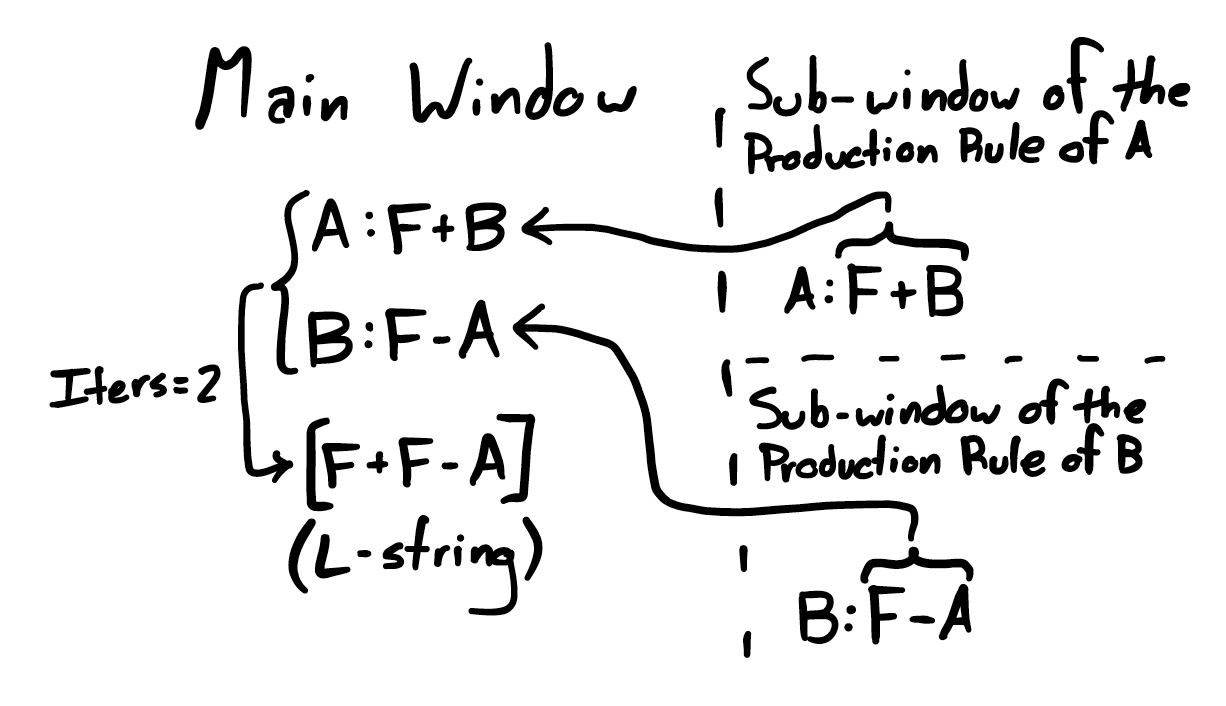 Main Window
A:F+B
B:F-A
Iters=2
[F+F-A]
(L-string)
Sub-window of the
Production Rule of A
A:F+B
Sub-window of the
Production Rule of B
B:F-A